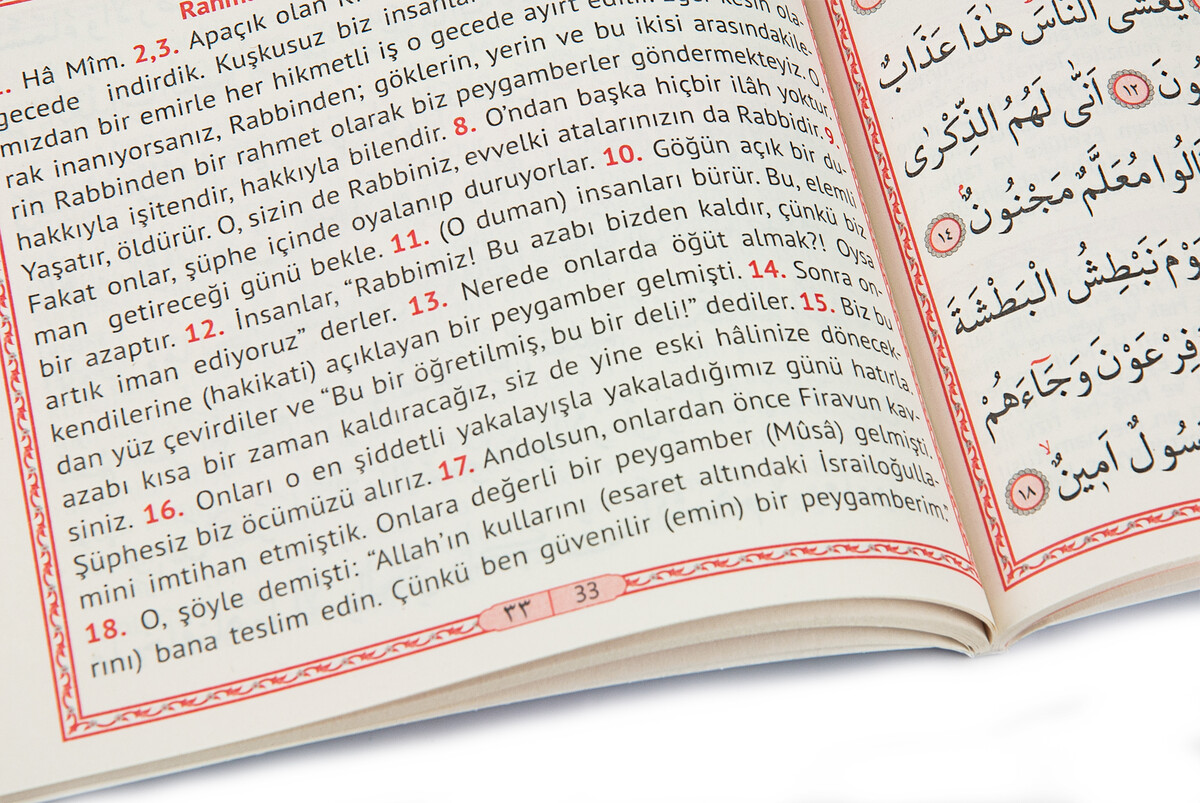 Hâ Mîm. 2,3. Apaçık olan
gecede indirdik. Kuşkusuz biz
mızdan bir emirle her hikmetli iş o gecede ayırt edilir. Eğer kesin ola-
rak inanıyorsanız, Rabbinden; göklerin, yerin ve bu ikisi arasındakile-
rin Rabbinden bir rahmet olarak biz peygamberler göndermekteyiz. O,
hakkıyla işitendir, hakkıyla bilendir. 8. O’ndan başka hiçbir ilâh yoktur.
Yaşatır, öldürür. O, sizin de Rabbiniz, evvelki atalarınızın da Rabbidir. 9.
Fakat onlar, şüphe içinde oyalanıp duruyorlar. 10. Göğün açık bir du-
man getireceği günü bekle. 11. (O duman) insanları bürür. Bu, elemli
bir azaptır. 12. İnsanlar, “Rabbimiz! Bu azabı bizden kaldır, çünkü biz
artık iman ediyoruz” derler. 13. Nerede onlarda öğüt almak?! Oysa
kendilerine (hakikati) açıklayan bir peygamber gelmişti. 14. Sonra on-
dan yüz çevirdiler ve “Bu bir öğretilmiş, bu bir deli!” dediler. 15. Biz bu
azabı kısa bir zaman kaldıracağız, siz de yine eski hâlinize dönecek-
siniz. 16. Onları o en şiddetli yakalayışla yakaladığımız günü hatırla.
Şüphesiz biz öcümüzü alırız. 17. Andolsun, onlardan önce Firavun kav-
mini imtihan etmiştik. Onlara değerli bir peygamber (Mûsâ) gelmişti.
18. O, şöyle demişti: “Allah’ın kullarını (esaret altındaki İsrailoğulla-
rını) bana teslim edin. Çünkü ben güvenilir (emin) bir peygamberim.”
٣٣ | 33
النَّاسَ هٰذَا عَذَابٌ
١٢ اَنّٰى لَهُمُ الذِّكْرٰى
مُعَلَّمٌ مَجْنُونٌ ١٤
نَبْطِشُ الْبَطْشَةَ
فِرْعَوْنَ وَجَٓاءَهُمْ
اَمٖينٌ ١٨